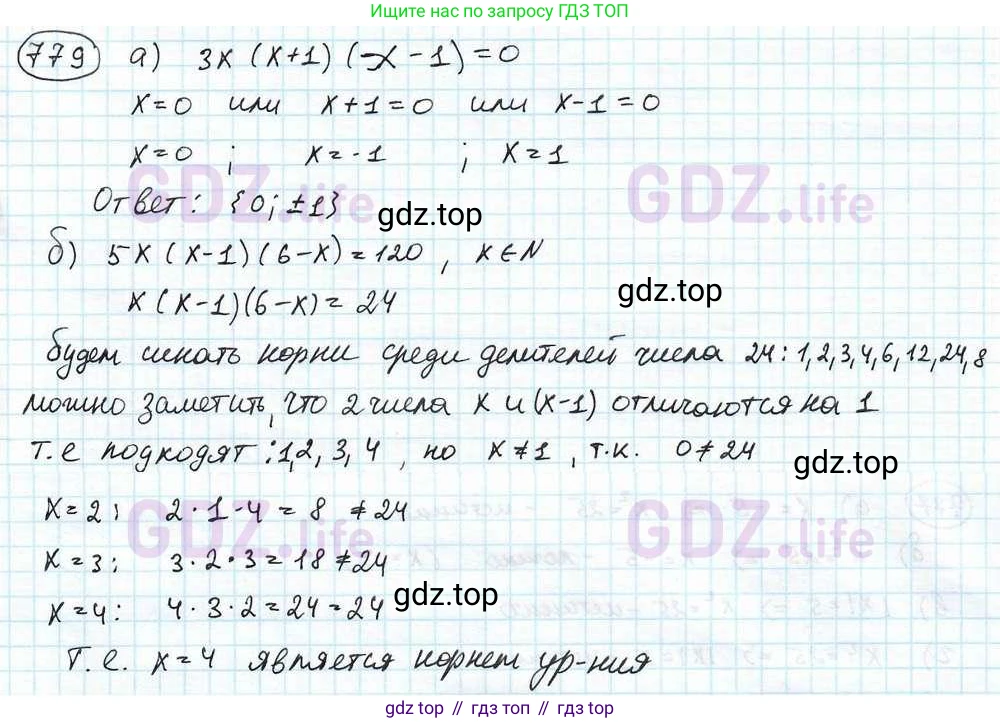 Ищите по запросу ГДЗ ТОП
779 а) 3x (x+1) (x-1)=0
x=0 или x+1=0 или x-1=0
x=0 ; x=-1 ; x=1
Ответ: {0; ±1}
gdz.top
GDZ.life GDZ.life
б) 5x (x-1)(6-x)=120, x∈N
x(x-1)(6-x)=24
gdz.top
будем искать корни среди делителей числа 24: 1,2,3,4,6,12,24,8
можно заметить, что 2 числа x и (x-1) отличаются на 1
т.е подходят: 1,2, 3, 4, но x≠1, т.к. 0≠24
gdz.top
x=2: 2·1·4=8 ≠24
GDZ.life GDZ.life
x=3: 3·2·3=18≠24
x=4: 4·3·2=24=24
gdz.top
Т.е. x=4 является корнем ур-ния
gdz.top // гдз.топ // gdz.top // гдз.топ